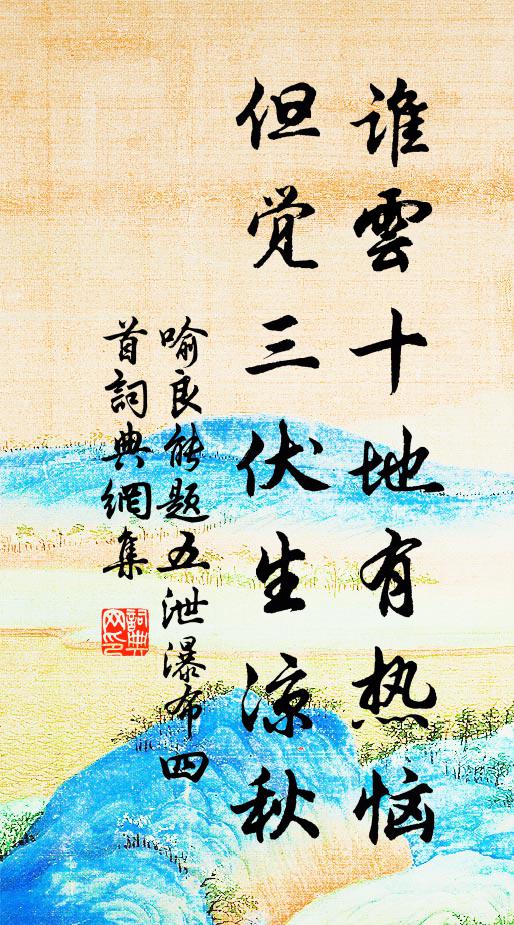 谁雲十地有热恼
但觉三伏生凉秋
喻良能题五泄瀑布四
首詞典網集
詞典
网印